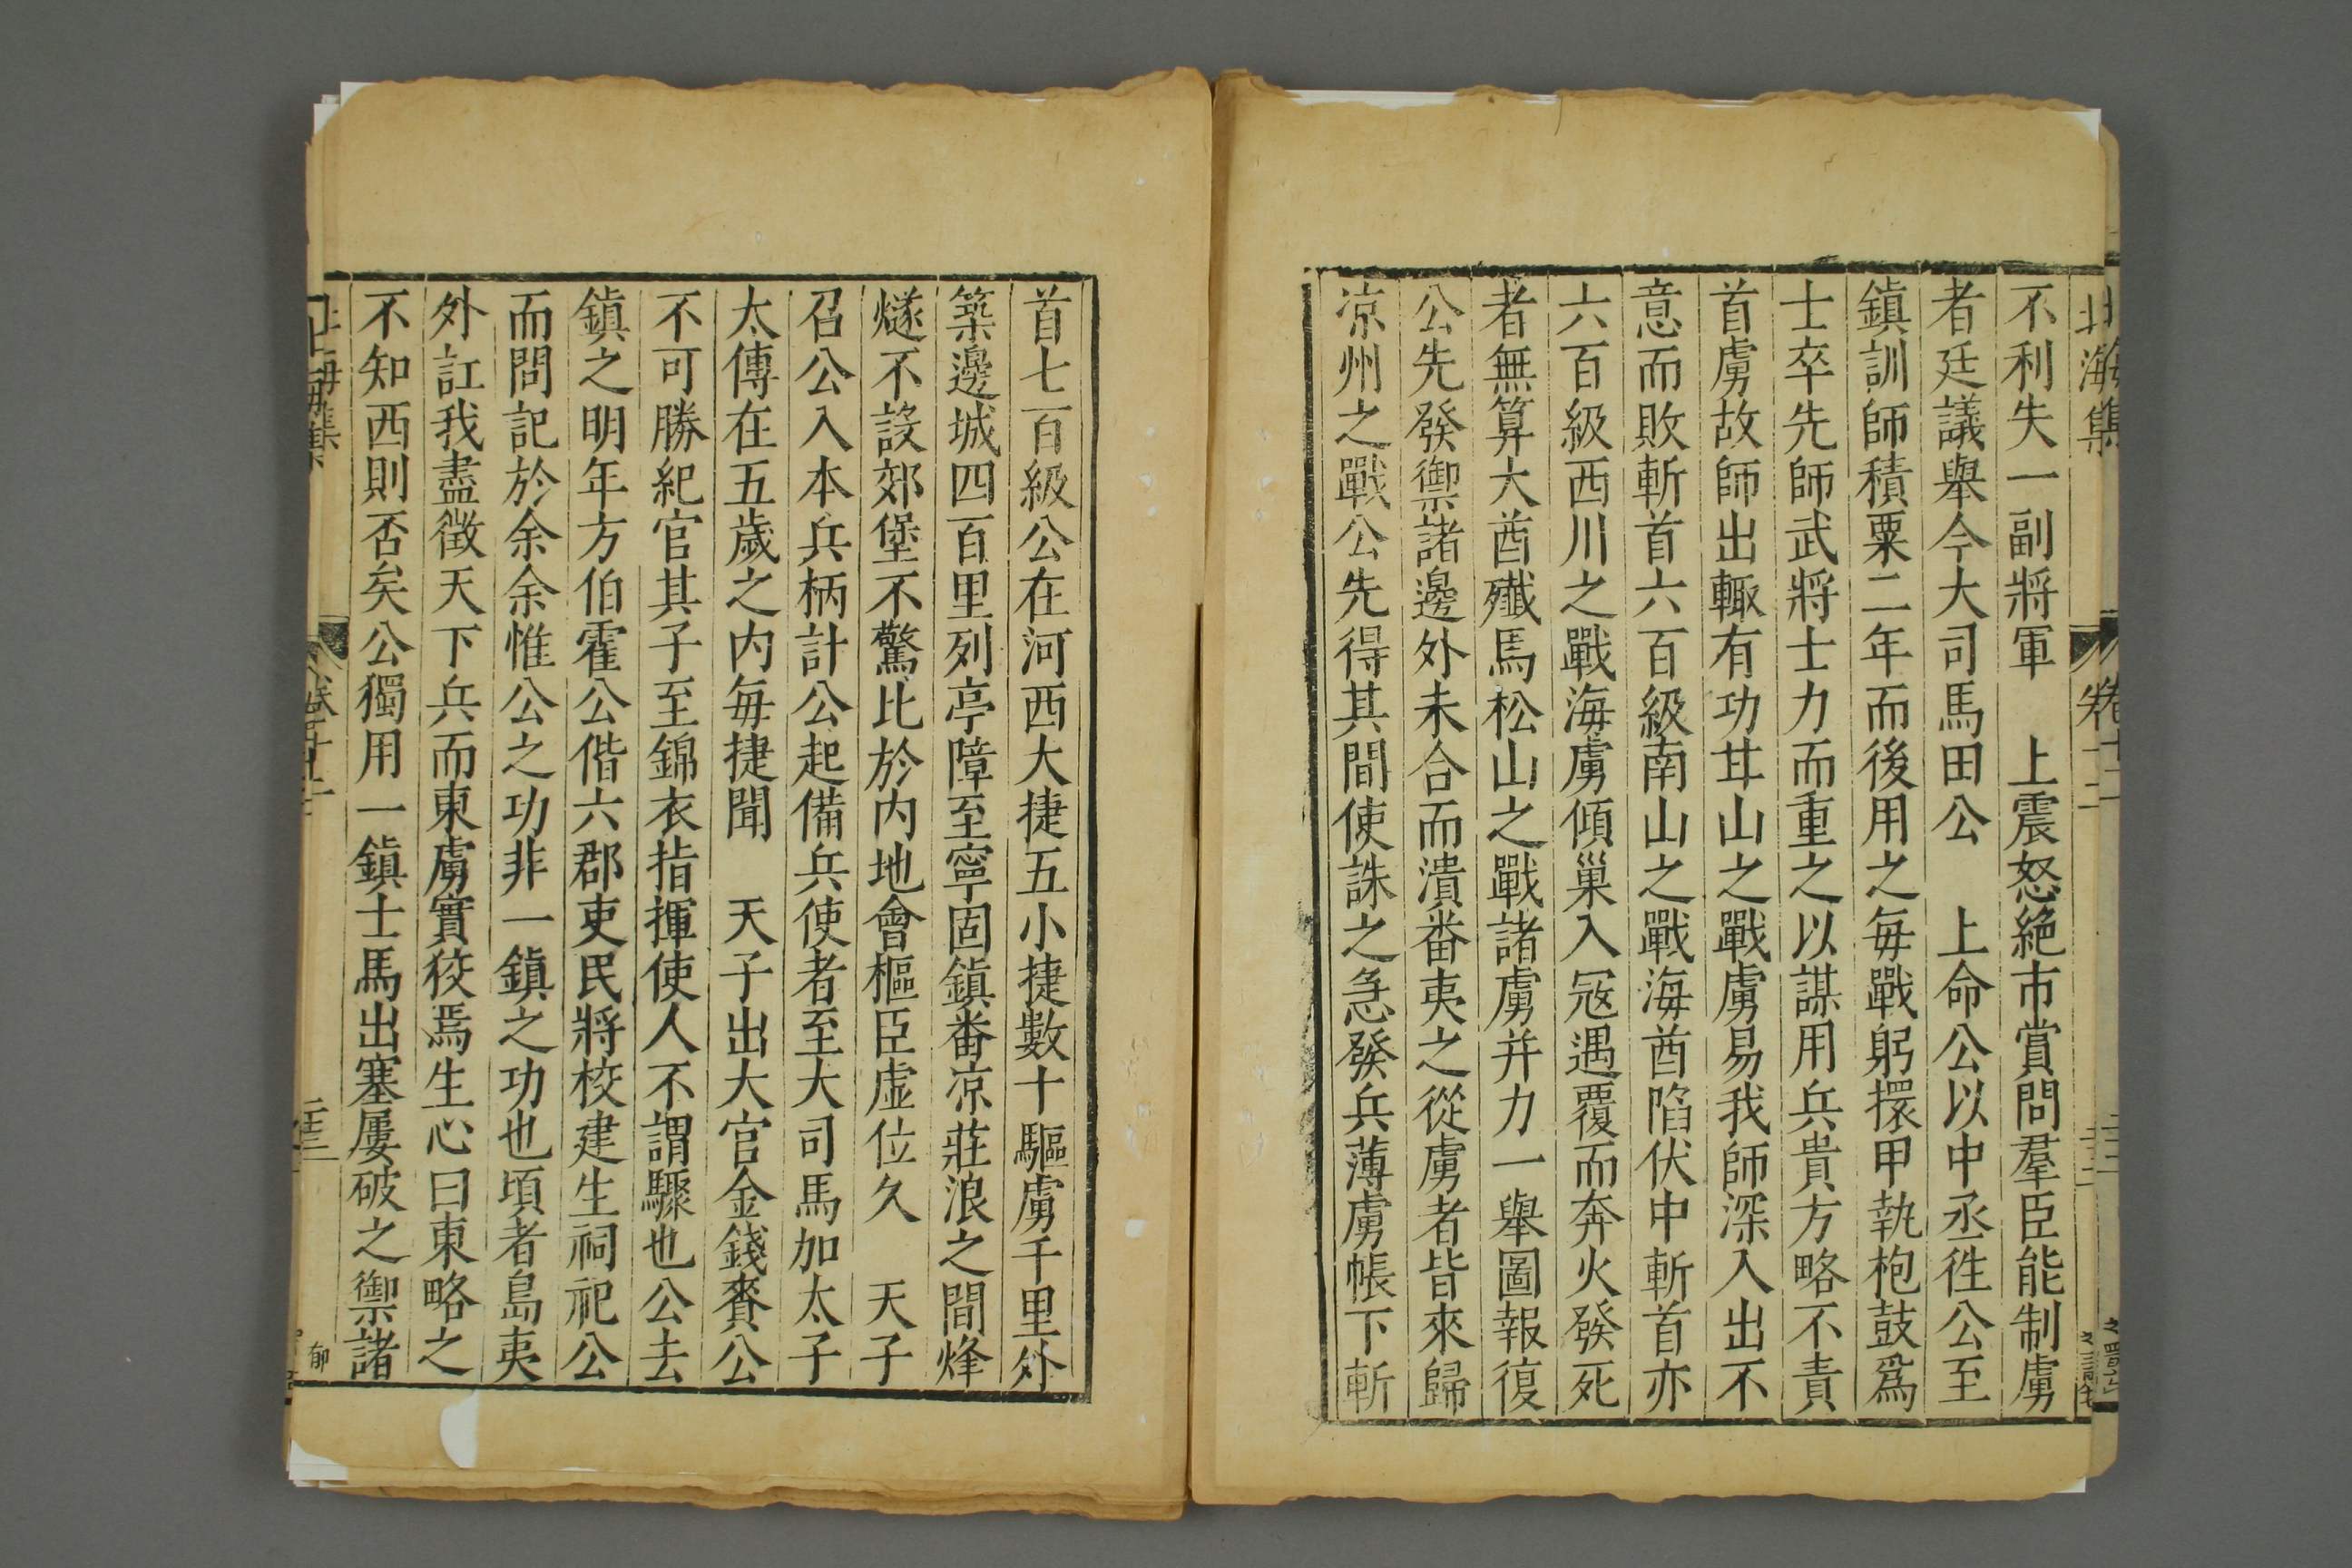 北海集
卷十二
不利失一副將軍　上震怒絶市賞問羣臣能制虜
者廷議舉今大司馬田公　上命公以中丞徃公至
鎮訓師積粟二年而後用之毎戰躬擐甲執枹鼓爲
士卒先師武將士力而重之以謀用兵貴方略不責
首虜故師出輙有功甘山之戰虜易我師深入出不
意而敗斬首六百級南山之戰海酋陷伏中斬首亦
六百級西川之戰海虜傾巢入冦遇覆而奔火發死
者無算大酋殱焉松山之戰諸虜并力一舉圖報復
公先發禦諸邊外未合而潰畨夷之從虜者皆來歸
凉州之戰公先得其間使誅之急發兵薄虜帳下斬
首七百級公在河西大捷五小捷數十驅虜千里外
築邊城四百里列亭障至寧固鎮畨凉莊浪之間烽
燧不設郊堡不驚比於内地會樞臣虛位久　天子
召公入本兵柄計公起備兵使者至大司馬加太子
太傳在五歲之内毎捷聞　天子出大官金錢賚公
不可勝紀官其子至錦衣指揮使人不謂驟也公去
鎮之明年方伯霍公偕六郡吏民將校建生祠祀公
而問記於余余惟公之功非一鎮之功也頃者島夷
外訌我盡徴天下兵而東虜實狡焉生心曰東略之
不知西則否矣公獨用一鎮士馬出塞屢破之禦諸
郁